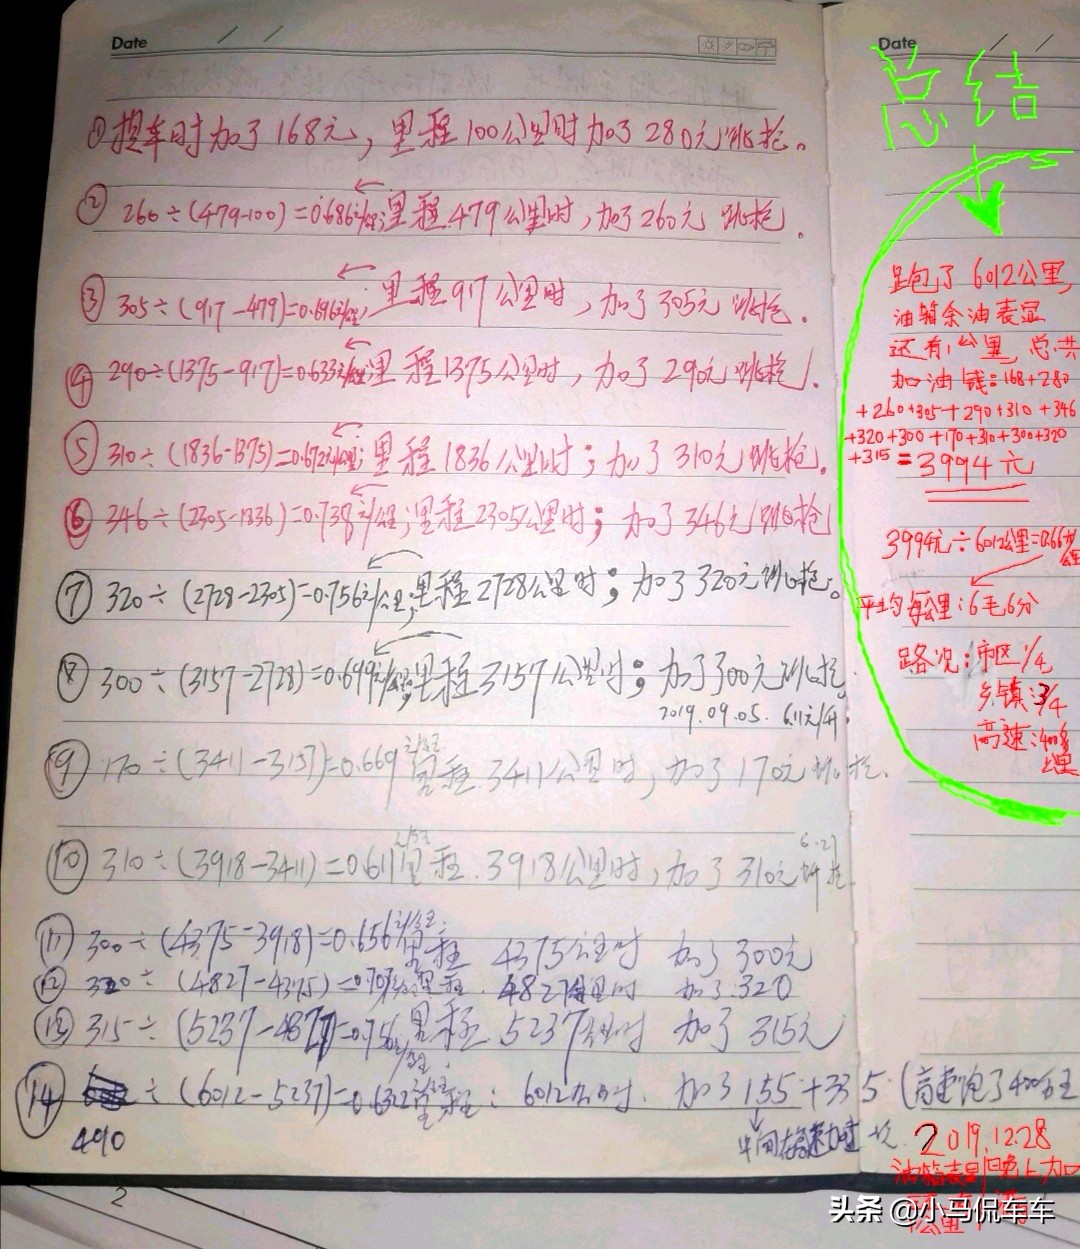 Date
①提车时加了168元，里程100公里时加了280元跳枪。
② 260÷(479-100)=0.686元/公里;里程479公里时,加了260元 跳枪.
③ 305÷(917-479)=0.696元/公里;里程917公里时,加了305元 跳枪.
④ 290÷(1375-917)=0.633元/公里里程1375公里时,加了290元跳枪.
⑤ 310÷(1836-1375)=0.672元/公里;里程1836公里时;加了310元跳枪.
⑥ 346÷(2305-1836)=0.738元/公里;里程2305公里时;加了346元跳枪
⑦ 320÷(2728-2305)=0.756元/公里;里程2728公里时;加了320元跳枪。
⑧ 300÷(3157-2728)=0.699元/公里;里程3157公里时;加了300元跳枪.
2019.09.05. 6.11元/升.
⑨ 170÷(3411-3157)=0.669元/公里 里程.3411公里时,加了170元跳枪.
6.21
⑩ 310÷(3918-3411)=0.611元/公里 里程.3918公里时,加了310元跳枪.
⑪ 300÷(4375-3918)=0.656元/公里 里程 4375公里时 加了300元
⑫ 320÷(4827-4375)=0.707元/公里里程.4827公里时 加了.320
⑬ 315÷(5237-4827)=0.756元/公里 里程.5237公里时 加了315元
⑭ ÷(6012-5237)=0.632元/公里 里程:6012公里时.加了155+335(高速跑了400公里
490
中间在高速加过一次.
2
Date
总结
跑了6012公里,
油箱余油表显
还有1公里,总共
加油钱:168+280
+260+305+290+310+346
+320+300+170+310+300+320
+315=3994元
3994元÷6012公里=0.66元/公里
平均每公里:6毛6分
路况:市区1/4
乡镇:3/4
高速:400多公里
2019.12.28
头条 @小马侃车车